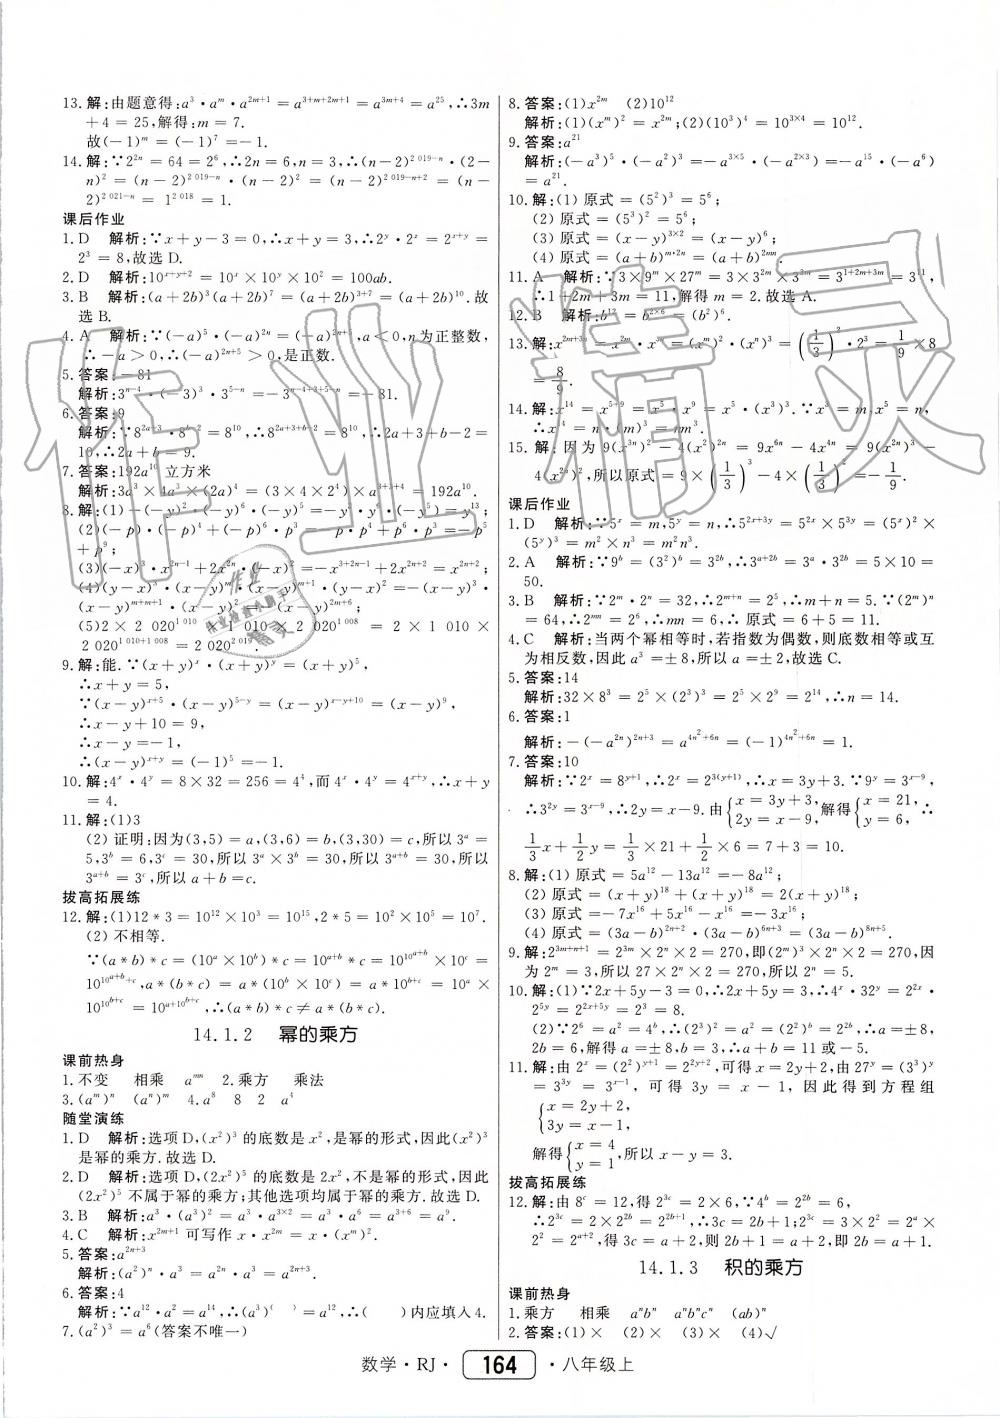 13. 解:由题意得:a³·aᵐ·a²ᵐ⁺¹=a³⁺ᵐ⁺²ᵐ⁺¹=a³ᵐ⁺⁴=a²⁵,∴3m
+4=25,解得:m=7.
故(-1)ᵐ=(-1)⁷=-1.
14. 解:∵2²ⁿ=64=2⁶,∴2n=6,n=3,∴(n-2)²⁰¹⁹⁻ⁿ·(2-
n)²=(n-2)²⁰¹⁹⁻ⁿ·(n-2)²=(n-2)²⁰¹⁹⁻ⁿ⁺²=(n-
2)²⁰²¹⁻ⁿ=1²⁰¹⁸=1.
课后作业
1. D 解析:∵x+y-3=0,∴x+y=3,∴2ʸ·2ˣ=2ˣ⁺ʸ=
2³=8,故选D.
2. D 解析:10ˣ⁺ʸ⁺²=10ˣ×10ʸ×10²=100ab.
3. B 解析:(a+2b)³(a+2b)⁷=(a+2b)³⁺⁷=(a+2b)¹⁰.故
选B.
4. A 解析:∵(-a)⁵·(-a)²ⁿ=(-a)²ⁿ⁺⁵,a<0,n为正整数,
∴-a>0,∴(-a)²ⁿ⁺⁵>0,是正数.
5. 答案:-81
解析:3ⁿ⁻⁴·(-3)³·3⁵⁻ⁿ=-3ⁿ⁻⁴⁺³⁺⁵⁻ⁿ=-81.
6. 答案:9
解析:∵8²ᵃ⁺³·8ᵇ⁻²=8¹⁰,∴8²ᵃ⁺³⁺ᵇ⁻²=8¹⁰,∴2a+3+b-2=
10,∴2a+b=9.
7. 答案:192a¹⁰立方米
解析:3a³×4a³×(2a)⁴=(3×4×2⁴)×a³⁺³⁺⁴=192a¹⁰.
8. 解:(1)-(-y)²·(-y)⁶·(-y)⁵=-y²·y⁶·(-y⁵)=y¹³;
(2)(-p)·(-p)⁴+(-p)⁶·p³=-p·p⁴+p⁶·p³=-p⁵
+p⁹;
(3)(-x)³·x²ⁿ⁻¹+x²ⁿ·(-x)²=-x³⁺²ⁿ⁻¹+x²ⁿ⁺²=0;
(4)(y-x)³·(x-y)ᵐ·(x-y)ᵐ⁺¹·(y-x)²=-(x-y)³·
(x-y)ᵐ⁺ᵐ⁺¹·(x-y)²=-(x-y)²ᵐ⁺⁶;
(5)2×2 020¹⁰¹⁰×1 010×2 020¹⁰⁰⁸=2×1 010×
2 020¹⁰¹⁰⁺¹⁰⁰⁸=2 020²⁰¹⁹.
9. 解:能.∵(x+y)ˣ·(x+y)ʸ=(x+y)⁵,
∴x+y=5,
∵(x-y)ˣ⁺⁵·(x-y)⁵⁻ʸ=(x-y)ˣ⁻ʸ⁺¹⁰=(x-y)⁹,
∴x-y+10=9,
∴x-y=-1,
∴(x-y)ˣ⁺ʸ=(-1)⁵=-1.
10. 解:4ˣ·4ʸ=8×32=256=4⁴,而4ˣ·4ʸ=4ˣ⁺ʸ,∴x+y
=4.
11. 解:(1)3
(2)证明:因为(3,5)=a,(3,6)=b,(3,30)=c,所以3ᵃ=
5,3ᵇ=6,3ᶜ=30,所以3ᵃ×3ᵇ=30,所以3ᵃ⁺ᵇ=30,所以
3ᵃ⁺ᵇ=3ᶜ,所以a+b=c.
拔高拓展练
12. 解:(1)12*3=10¹²×10³=10¹⁵,2*5=10²×10⁵=10⁷.
(2)不相等.
∵(a*b)*c=(10ᵃ×10ᵇ)*c=10^{a+b}*c=10^{10^{a+b}}×10ᶜ=
10^{10^{a+b}+c},a*(b*c)=a*(10ᵇ×10ᶜ)=a*10ᵇ⁺ᶜ=10ᵃ×
10^{10^{b+c}}=10^{a+10^{b+c}},∴(a*b)*c≠a*(b*c).
14.1.2 幂的乘方
课前热身
1. 不变 相乘 aᵐⁿ 2. 乘方 乘法
3. (aᵐ)ⁿ (aⁿ)ᵐ 4. a⁸ 8 2 a⁴
随堂演练
1. D 解析:选项D,(x²)³的底数是x²,是幂的形式,因此(x²)³
是幂的乘方.故选D.
2. D 解析:选项D,(2x²)⁵的底数是2x²,不是幂的形式,因此
(2x²)⁵不属于幂的乘方;其他选项均属于幂的乘方.故选D.
3. B 解析:a³·(a³)²=a³·a^{3×2}=a³·a⁶=a³⁺⁶=a⁹.
4. C 解析:x²ᵐ⁺¹可写作x·x²ᵐ=x·(xᵐ)².
5. 答案:a²ⁿ⁺³
解析:(a²)ⁿ·a³=a²ⁿ·a³=a²ⁿ⁺³.
6. 答案:4
解析:∵a¹²·a²=a¹⁴,∴(a³)⁽ ⁾=a¹²,∴( )内应填入4.
7. (a²)³=a⁶(答案不唯一)
8. 答案:(1)x²ᵐ (2)10¹²
解析:(1)(xᵐ)²=x²ᵐ;(2)(10³)⁴=10^{3×4}=10¹².
9. 答案:a²¹
解析:(-a³)⁵·(-a²)³=-a^{3×5}·(-a^{2×3})=-a¹⁵·(-a⁶)
=a²¹.
10. 解:(1)原式=(5²)³=5⁶;
(2)原式=(5³)²=5⁶;
(3)原式=(x-y)^{3×2}=(x-y)⁶;
(4)原式=(a+b)^{m·2n}=(a+b)²ᵐⁿ.
11. A 解析:∵3×9ᵐ×27ᵐ=3×3²ᵐ×3³ᵐ=3¹⁺²ᵐ⁺³ᵐ=3¹¹,
∴1+2m+3m=11,解得m=2.故选A.
12. B 解析:b¹²=b^{2×6}=(b²)⁶.
13. 解:x²ᵐ⁺³ⁿ=x²ᵐ·x³ⁿ=(xᵐ)²·(xⁿ)³=(1/3)²·2³=1/9×8
=8/9.
14. 解:x¹⁴=x⁵⁺⁹=x⁵·x⁹=x⁵·(x³)³.∵x³=m,x⁵=n,
∴x¹⁴=n·(m)³=nm³.
15. 解:因为9(x³ⁿ)²-4(x²)²ⁿ=9x⁶ⁿ-4x⁴ⁿ=9(x²ⁿ)³-
4(x²ⁿ)²,所以原式=9×(1/3)³-4×(1/3)²=-1/9.
课后作业
1. D 解析:∵5ˣ=m,5ʸ=n,∴5²ˣ⁺³ʸ=5²ˣ×5³ʸ=(5ˣ)²×
(5ʸ)³=m²×n³=m²n³.
2. A 解析:∵9ᵇ=(3²)ᵇ=3²ᵇ,∴3ᵃ⁺²ᵇ=3ᵃ·3²ᵇ=5×10=
50.
3. B 解析:∵2ᵐ·2ⁿ=32,∴2ᵐ⁺ⁿ=2⁵,∴m+n=5.∵(2ᵐ)ⁿ=
64,∴2ᵐⁿ=2⁶,∴mn=6,∴原式=6+5=11.
4. C 解析:当两个幂相等时,若指数为偶数,则底数相等或互
为相反数,因此a³=±8,所以a=±2,故选C.
5. 答案:14
解析:32×8³=2⁵×(2³)³=2⁵×2⁹=2¹⁴,∴n=14.
6. 答案:1
解析:-(-a²ⁿ)²ⁿ⁺³=a^{4n²+6n}=(-1)^{4n²+6n}=1.
7. 答案:10
解析:∵2ˣ=8ʸ⁺¹,∴2ˣ=2^{3(y+1)},∴x=3y+3.∵9ʸ=3ˣ⁻⁹,
∴3²ʸ=3ˣ⁻⁹,∴2y=x-9.由{x=3y+3, 2y=x-9,解得{x=21, y=6,∴
1/3x+1/2y=1/3×21+1/2×6=7+3=10.
8. 解:(1)原式=5a¹²-13a¹²=-8a¹²;
(2)原式=(x+y)¹⁸+(x+y)¹⁸=2(x+y)¹⁸;
(3)原式=-7x¹⁶+5x¹⁶-x¹⁶=-3x¹⁶;
(4)原式=(3a-b)²ⁿ⁺²·(3a-b)⁶ⁿ⁺³=(3a-b)⁸ⁿ⁺⁵.
9. 解:2³ᵐ⁺ⁿ⁺¹=2³ᵐ×2ⁿ×2=270,即(2ᵐ)³×2ⁿ×2=270,因
为2ᵐ=3,所以27×2ⁿ×2=270,所以2ⁿ=5.
10. 解:(1)∵2x+5y-3=0,∴2x+5y=3,∴4ˣ·32ʸ=2²ˣ·
2⁵ʸ=2²ˣ⁺⁵ʸ=2³=8.
(2)∵2⁶=a²=4ᵇ,∴(2³)²=a²=(2²)ᵇ=2²ᵇ,∴a=±8,
2b=6,解得a=±8,b=3,∴a+b=11或-5.
11. 解:由2ˣ=(2²)ʸ⁺¹=2²ʸ⁺²,可得x=2y+2,由27ʸ=(3³)ʸ
=3³ʸ=3ˣ⁻¹,可得3y=x-1,因此得到方程组
{x=2y+2,
3y=x-1,
解得{x=4,
y=1,所以x-y=3.
拔高拓展练
12. 解:由8ᶜ=12,得2³ᶜ=2×6,∵4ᵇ=2²ᵇ=6,
∴2³ᶜ=2×2²ᵇ=2²ᵇ⁺¹,∴3c=2b+1;∵2³ᶜ=3×2²=2ᵃ×
2²=2ᵃ⁺²,得3c=a+2,则2b+1=a+2,即2b=a+1.
14.1.3 积的乘方
课前热身
1. 乘方 相乘 aⁿbⁿ aⁿbⁿcⁿ (ab)ⁿ
2. 答案:(1)× (2)× (3)× (4)√
数学·RJ· 164 ·八年级上
作业精灵